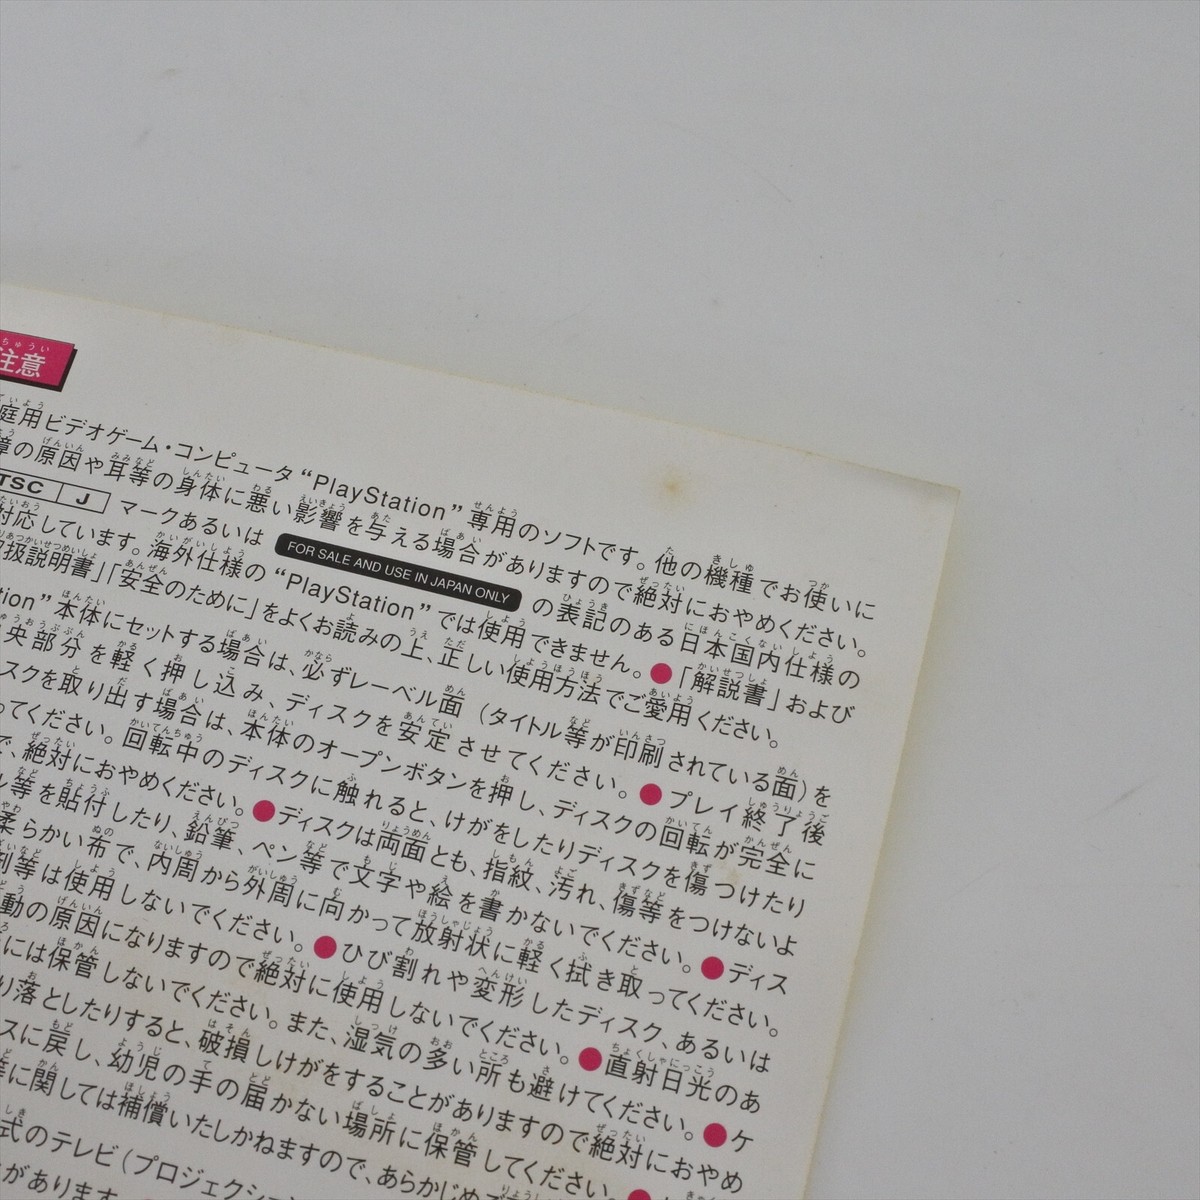 注意
庭用ビデオゲーム・コンピュータ“PlayStation”専用のソフトです。他の機種でお使いに
障の原因や耳等の身体に悪い影響を与える場合がありますので絶対におやめください。
TSC J マークあるいは FOR SALE AND USE IN JAPAN ONLY の表記のある日本国内仕様の
対応しています。海外仕様の“PlayStation”では使用できません。●「解説書」および
取扱説明書」「安全のために」をよくお読みの上、正しい使用方法でご愛用ください。
tion”本体にセットする場合は、必ずレーベル面（タイトル等が印刷されている面）を
央部分を軽く押し込み、ディスクを安定させてください。●プレイ終了後
スクを取り出す場合は、本体のオープンボタンを押し、ディスクの回転が完全に
ってください。回転中のディスクに触れると、けがをしたりディスクを傷つけたり
で、絶対におやめください。●ディスクは両面とも、指紋、汚れ、傷等をつけないよ
ル等を貼付したり、鉛筆、ペン等で文字や絵を書かないでください。●ディス
柔らかい布で、内周から外周に向かって放射状に軽く拭き取ってください。
剤等は使用しないでください。●ひび割れや変形したディスク、あるいは
動の原因になりますので絶対に使用しないでください。●直射日光のあ
には保管しないでください。また、湿気の多い所も避けてください。●ケ
り落としたりすると、破損しけがをすることがありますので絶対におやめ
スに戻し、幼児の手の届かない場所に保管してください。●
等に関しては補償いたしかねますので、あらかじめ
式のテレビ（プロジェクション
があります。